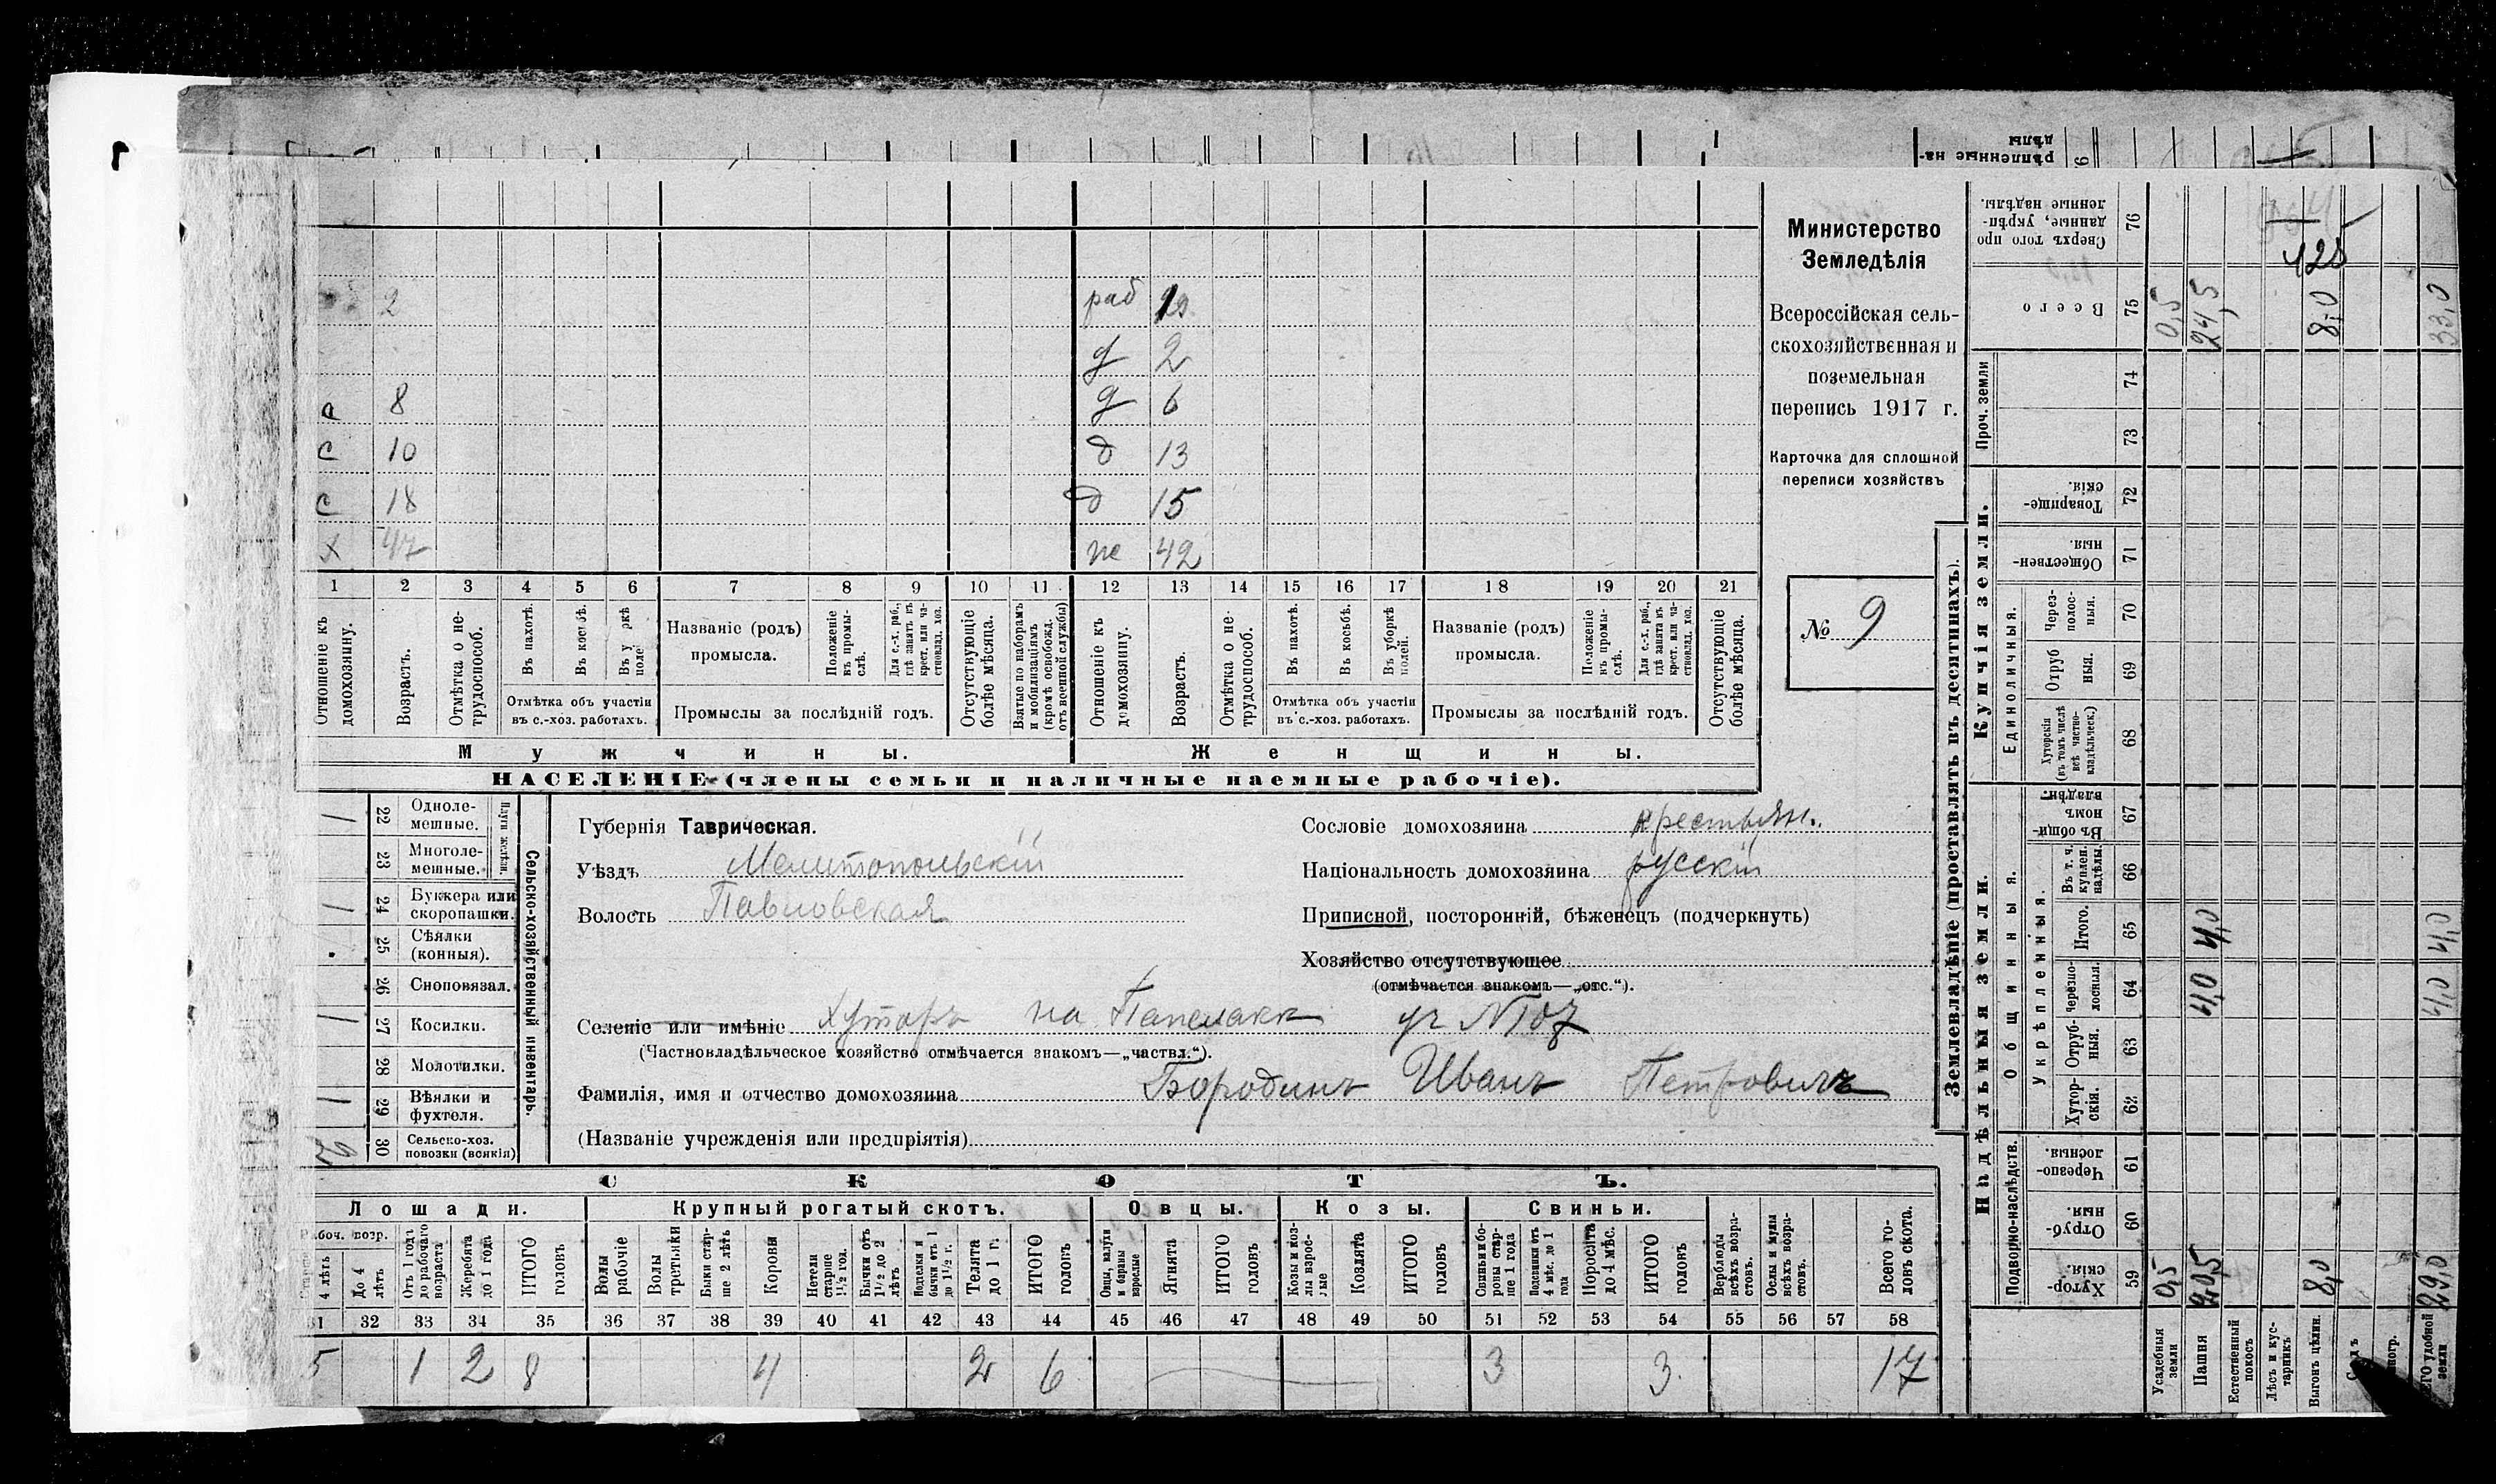 рѣпленные на-
дѣлы
6
Министерство
Земледѣлія
Всероссійская сель-
скохозяйственная и
поземельная
перепись 1917 г.
Карточка для сплошной
переписи хозяйствъ
№ 9
2 раб 20
д 2
с 8 д 6
с 10 д 13
с 18 д 15
х 47 же 42
1 2 3 4 5 6 7 8 9 10 11 12 13 14 15 16 17 18 19 20 21
Отношеніе къ домохозяину.
Возрастъ.
Отмѣтка о не-трудоспособ.
Въ пахотѣ.
Въ косьбѣ.
Въ у ркѣ поле
Отмѣтка объ участіи
въ с.-хоз. работахъ.
Названіе (родъ)
промысла.
Положеніе въ промы-слѣ.
Для с.-х. раб., гдѣ занятъ въ крест. или ча-стновлад. хоз.
Промыслы за послѣдній годъ.
Отсутствующіе болѣе мѣсяца.
Взятые по наборамъ и мобилизаціямъ (кромѣ освобожд. отъ военной службы)
Отношеніе къ домохозяину.
Возрастъ.
Отмѣтка о не-трудоспособ.
Въ пахотѣ.
Въ косьбѣ.
Въ уборкѣ полей.
Отмѣтка объ участіи
въ с.-хоз. работахъ.
Названіе (родъ)
промысла.
Положеніе въ промы-слѣ.
Для с.-х. раб., гдѣ занята въ крест. или ча-стновлад. хоз.
Промыслы за послѣдній годъ.
Отсутствующіе болѣе мѣсяца.
Мужчины. Женщины.
НАСЕЛЕНІЕ (члены семьи и наличные наемные рабочіе).
Сельско-хозяйственный инвентарь.
Плуги желѣзн.
1 22 Одноле-мешные.
23 Многоле-мешные.
1 24 Буккера или скоропашки.
25 Сѣялки (конныя).
26 Сноповязал.
1 27 Косилки.
28 Молотилки.
1 29 Вѣялки и фухтеля.
30 Сельско-хоз. повозки (всякія)
Губернія Таврическая.
Уѣздъ Мелитопольскій
Волость Павловская
Сословіе домохозяина крестьян.
Національность домохозяина русскій
Приписной, посторонній, бѣженецъ (подчеркнуть)
Хозяйство отсутствующее
(отмѣчается знакомъ—„отс.“).
Селеніе или имѣніе Хуторъ на уч №
(Частновладѣльческое хозяйство отмѣчается знакомъ—„частвл.“).
Фамилія, имя и отчество домохозяина Бородинъ Иванъ Петровичъ
(Названіе учрежденія или предпріятія)
СКОТЪ.
Лошади. Крупный рогатый скотъ. Овцы. Козы. Свиньи.
Рабоч. возр.
4 лѣтъ
До 4 лѣтъ
Отъ 1 года до рабочаго возраста
Жеребята до 1 года
ИТОГО головъ
Волы рабочіе
Волы третьяки
Быки стар-ше 2 лѣтъ
Коровы
Нетели старше 1½ год.
Бычки отъ 1½ до 2 лѣтъ
Подтелки и бычки отъ 1 до 1½ г.
Телята до 1 г.
ИТОГО головъ
Овцы, валухи и бараны взрослые
Ягнята
ИТОГО головъ
Козы и коз-лы взрос-лые
Козлята
ИТОГО головъ
Свиньи и бо-ровы стар-ше 1 года
Подсвинки отъ 4 мѣс. до 1 года
Поросята до 4 мѣс.
ИТОГО головъ
Верблюды всѣхъ возра-стовъ.
Ослы и мулы всѣхъ возра-стовъ.
Всего го-ловъ скота.
31 32 33 34 35 36 37 38 39 40 41 42 43 44 45 46 47 48 49 50 51 52 53 54 55 56 57 58
5 1 2 8 4 2 6 3 3 17
Землевладѣніе (проставлять въ десятинахъ).
Купчія земли.
Надѣльныя земли.
Проч. земли
Единоличныя.
Общинныя.
Укрѣпленныя.
Подворно-наслѣдств.
76 Сверхъ того про данные, укрѣп-ленные надѣлы. 125
75 Всего 0,5 24,5 8,0 33,0
74
73
72 Товарище-скія.
71 Обществен-ныя.
70 Через-полос-ныя.
69 Отруб ныя.
68 Хуторскія (въ томъ числѣ всѣ частно-владѣльческ.)
67 Въ общин-номъ владѣн.
66 Въ т. ч. куплен. надѣлы.
65 Итого. 4,0 4,0
64 Черезпо-лосныя. 4,0 4,0
63 Отруб-ныя.
62 Хутор-скія.
61 Черезпо-лосныя.
60 Отруб-ныя.
59 Хутор-скія. 0,5 20,5 8,0 29,0
Усадебныя земли
Пашня
Естественный покосъ
Лѣсъ и кус-тарникъ
Выгонъ цѣлин.
ЕГО удобной земли